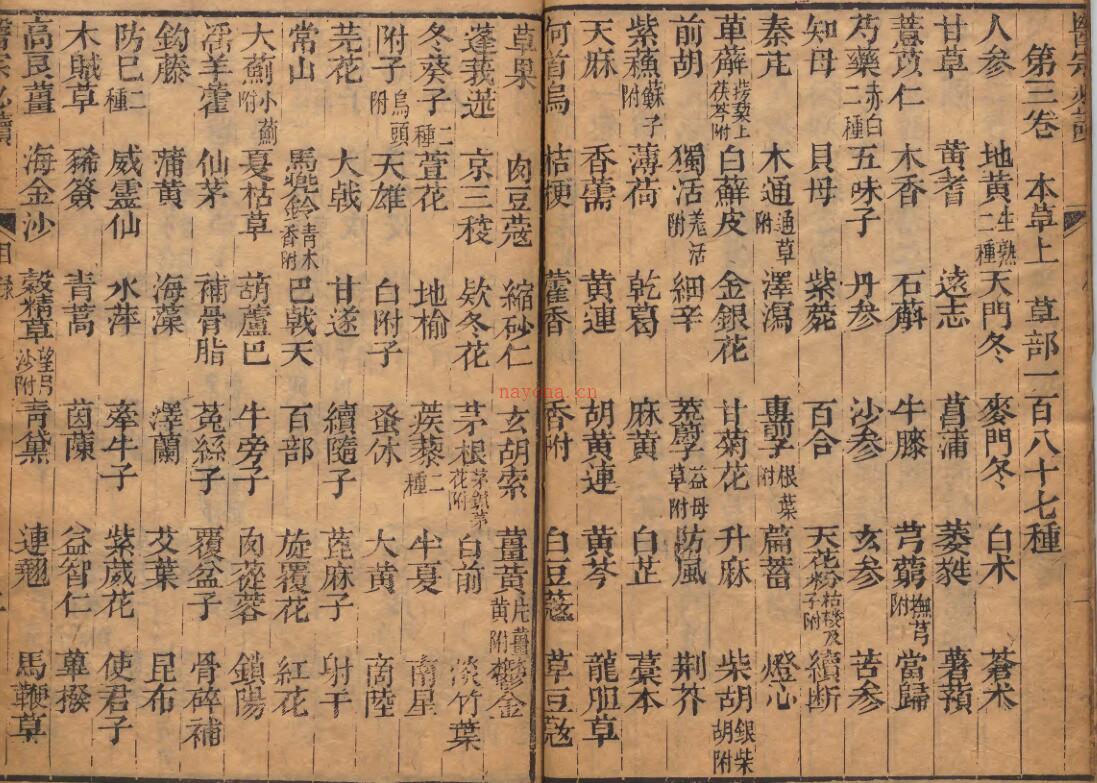 醫宗必讀
第三卷 本草上 草部一百八十七種
人參 地黃生熟二種 天門冬 麥門冬 白朮 蒼朮
甘草 黃耆 遠志 菖蒲 萎蕤 薯蕷
薏苡仁 木香 石斛 牛膝 芎藭撫芎附 當歸
芍藥赤白二種 五味子 丹參 沙參 玄參 苦參
知母 貝母 紫菀 百合 天花粉 續斷
秦艽 木通通草附 澤瀉 車前根葉附 萹蓄 燈心
萆薢 白蘚皮 金銀花 甘菊花 升麻 柴胡銀柴胡附
前胡 獨活羗活附 細辛 茺蔚子益母草附 防風 荆芥
紫蘓蘇子附 薄荷 乾葛 麻黃 白芷 藁本
天麻 香薷 黃連 胡黃連 黃芩 龍胆草
何首烏 桔梗 藿香 香附 白豆蔻 草豆蔻
草果 肉豆蔻 縮砂仁 玄胡索 薑黃片薑黃附 鬱金
蓬莪蒁 京三稜 欵冬花 茅根茅鍼茅花附 白前 淡竹葉
冬葵子 萱花 地榆 蒺藜二種 半夏 南星
附子烏頭附 天雄 白附子 蚤休 大黃 商陸
芫花 大戟 甘遂 續隨子 蓖麻子 射干
常山 馬兜鈴青木香附 巴戟天 百部 旋覆花 紅花
大薊小薊附 夏枯草 葫蘆巴 牛旁子 肉蓯蓉 鎖陽
淫羊藿 仙茅 補骨脂 菟絲子 覆盆子 骨碎補
鈎藤 蒲黃 海藻 澤蘭 艾葉 昆布
防巳二種 威靈仙 水萍 牽牛子 紫葳花 使君子
木賊草 豨薟 青蒿 茵蔯 益智仁 蓽撥
高良薑 海金沙 穀精草 青黛 連翹 馬鞭草
醫宗必讀 目錄
nayona.cn